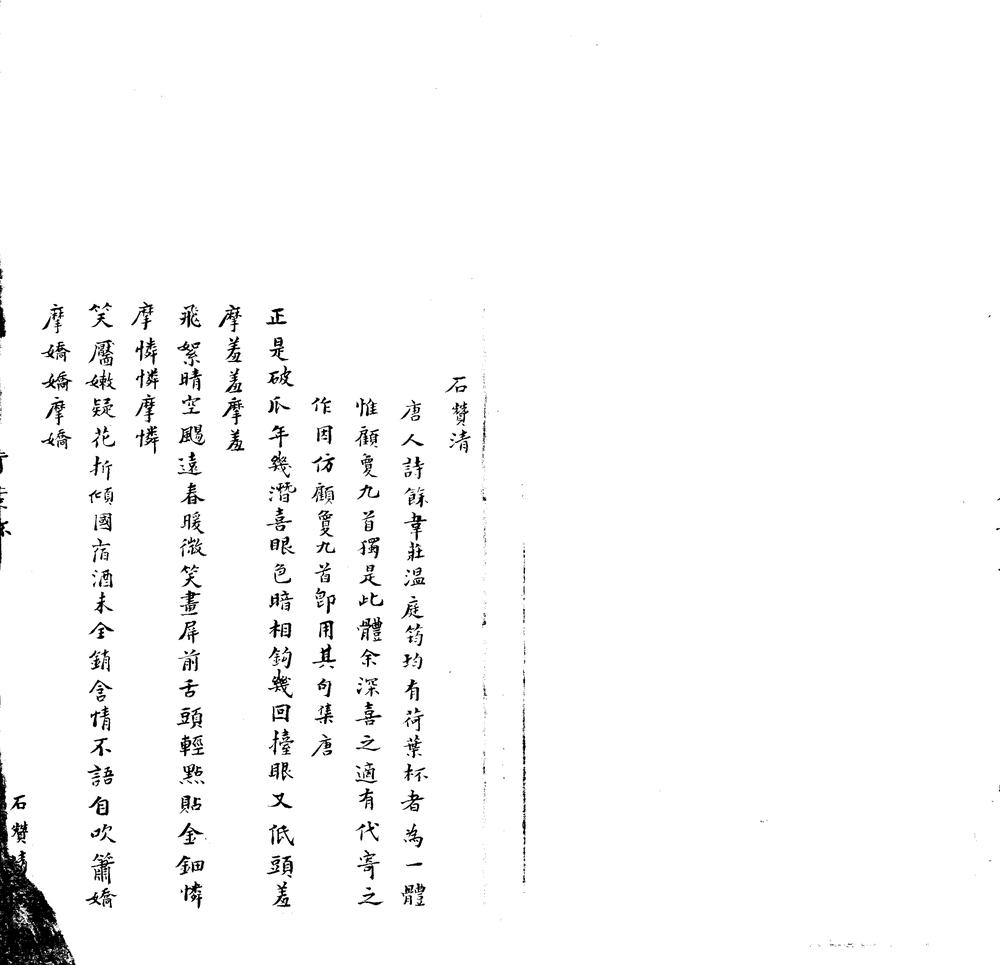 石贊清
唐人詩餘韋莊温庭筠均有荷葉杯者為一體
惟顧敻九首獨是此體余深喜之適有代寄之
作因仿顧敻九首卽用其句集唐
正是破瓜年幾潛喜眼色暗相鉤幾回擡眼又低頭羞
摩羞羞摩羞
飛絮晴空颺遠春暖微笑畫屏前舌頭輕點貼金鈿憐
摩憐憐摩憐
笑靨嫩疑花拆傾國宿酒未全銷含情不語自吹簫嬌
摩嬌嬌摩嬌
石贊清